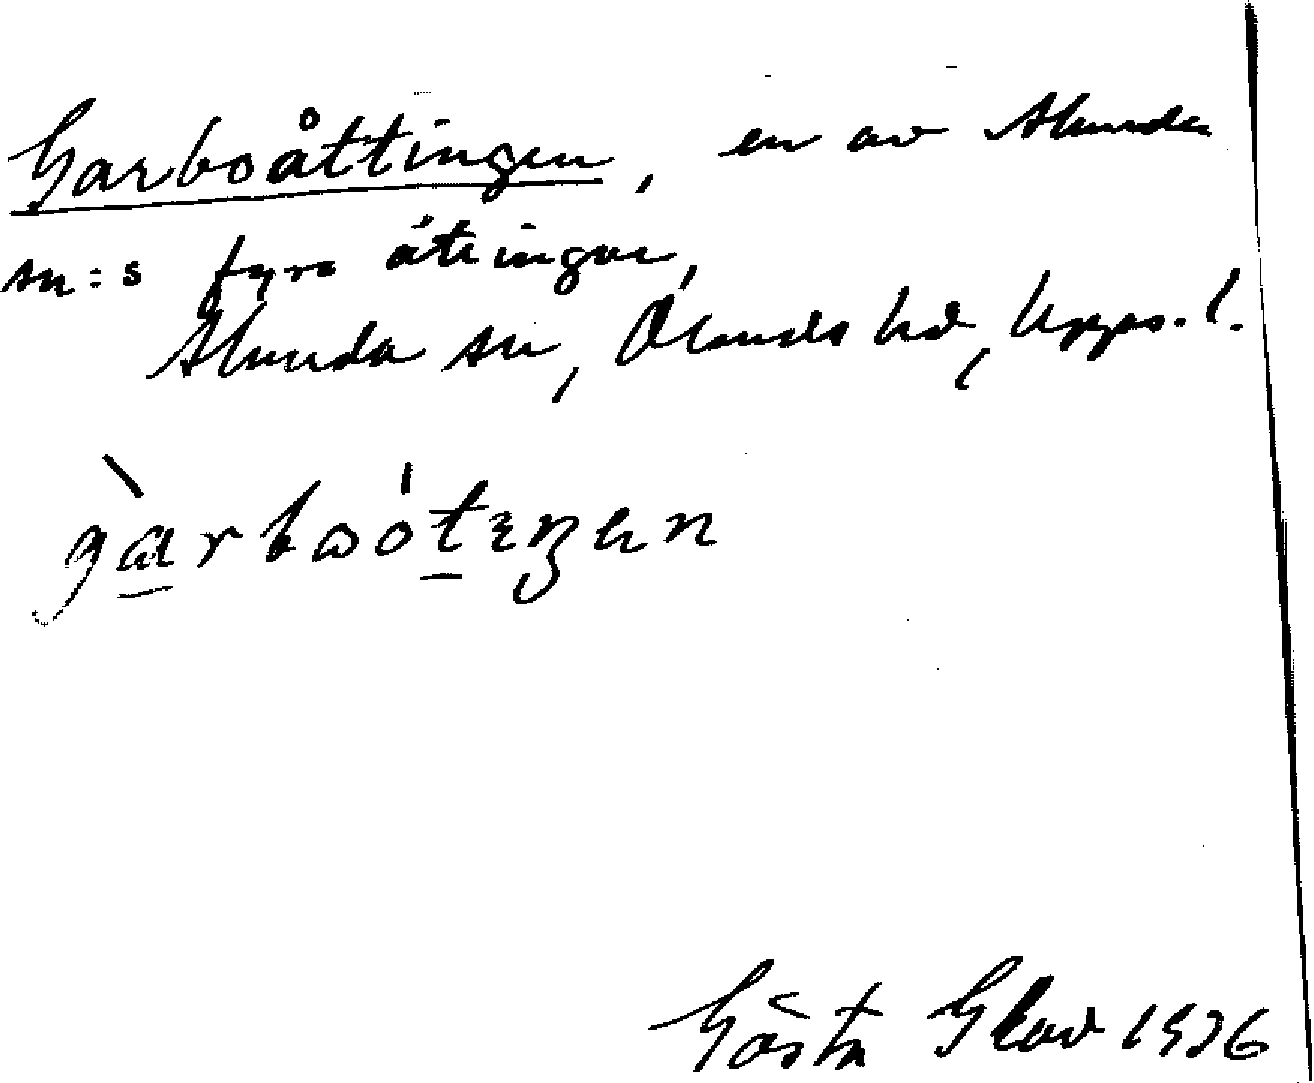 Garboåttingen, en av Alunda
sn:s fyra åttingar,
Alunda sn, Olands hd, Upps. l.
gàrboótiŋen
Gösta Glad 1936